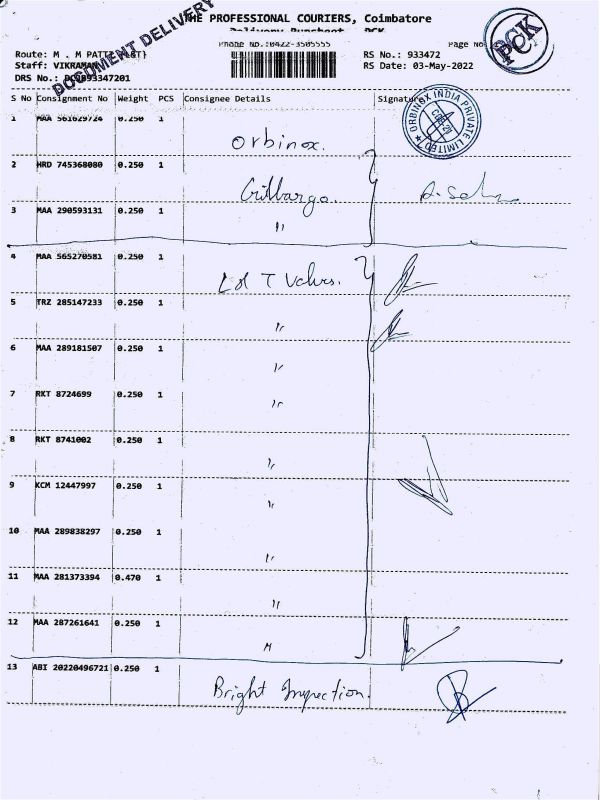 THE PROFESSIONAL COURIERS, Coimbatore
Delivery Runsheet - PCK
Phone No.:0422-3505555 Page No
DOCUMENT DELIVERY
PCK
Route: M . M PATTI (L&T)
Staff: VIKRAMAN
RS No.: 933472
RS Date: 03-May-2022
DRS No.:
S No Consignment No Weight PCS Consignee Details Signature
ORBINOX INDIA PRIVATE LIMITED
1 MAA 561629724 0.250 1
Orbinox.
2 HRD 745368080 0.250 1
Gilbargo.
3 MAA 290593131 0.250 1
"
4 MAA 565270581 0.250 1
L & T Valves.
5 TRZ 285147233 0.250 1
"
6 MAA 289181507 0.250 1
"
7 RKT 8724699 0.250 1
"
8 RKT 8741002 0.250 1
"
9 KCM 12447997 0.250 1
"
10 MAA 289838297 0.250 1
"
11 MAA 281373394 0.470 1
"
12 MAA 287261641 0.250 1
"
13 ABI 20220496721 0.250 1
Bright Inspection.